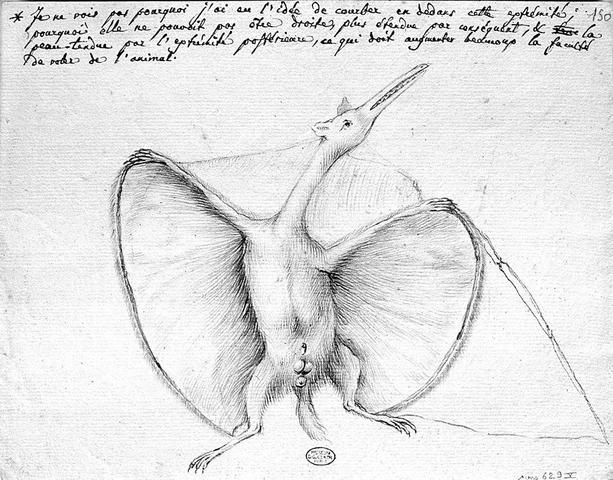 * Je ne vois pas pourquoi j'ai eu l'idée de courber en dedans cette extrémité; 150
pourquoi elle ne pouvoit pas être droite, plus étendue par conséquent, & la
peau tendue par l'extrémité postérieure, ce qui doit augmenter beaucoup la faculté
de voler de l'animal.
629 V